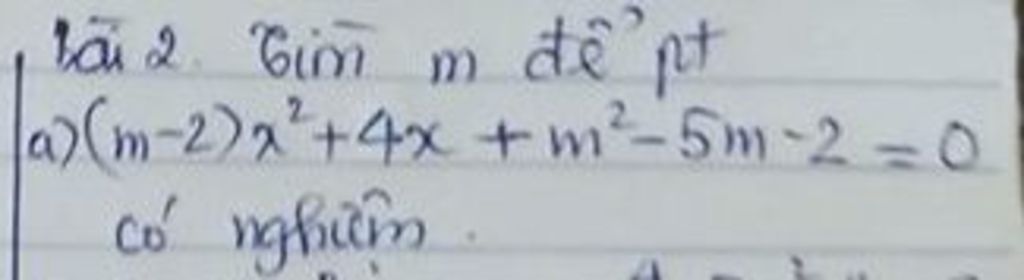 Bài 2. Tìm m để pt
a) (m-2)x² + 4x + m² - 5m - 2 = 0
có nghiệm.